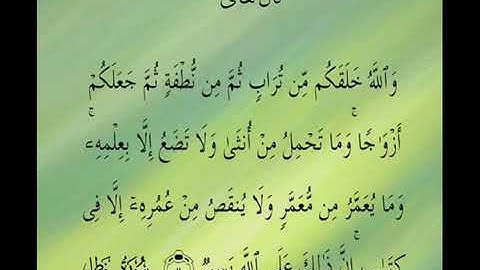 قال تعالى
وَٱللَّهُ خَلَقَكُم مِّن تُرَابٍ ثُمَّ مِن نُّطْفَةٍ ثُمَّ جَعَلَكُمْ
أَزْوَٰجًا ۚ وَمَا تَحْمِلُ مِنْ أُنثَىٰ وَلَا تَضَعُ إِلَّا بِعِلْمِهِۦ ۚ
وَمَا يُعَمَّرُ مِن مُّعَمَّرٍ وَلَا يُنقَصُ مِنْ عُمُرِهِۦٓ إِلَّا فِى
كِتَٰبٍ ۚ إِنَّ ذَٰلِكَ عَلَى ٱللَّهِ يَسِيرٌ